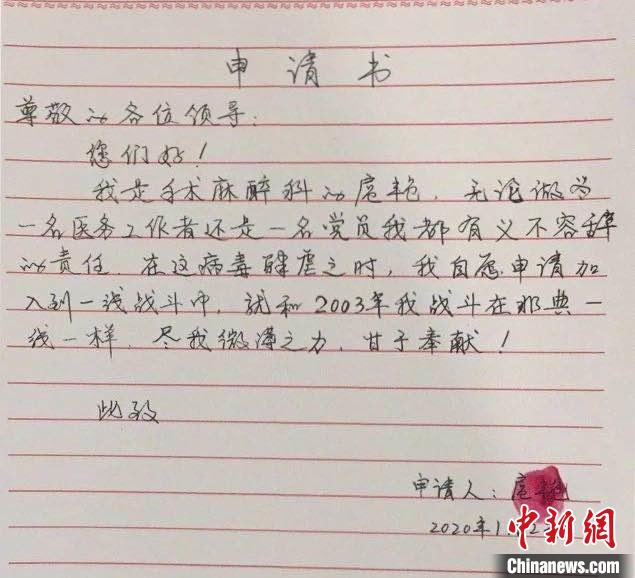 申请书
尊敬的各位领导：
您们好！
我是手术麻醉科的扈艳，无论做为
一名医务工作者还是一名党员我都有义不容辞
的责任．在这病毒肆虐之时，我自愿申请加
入到一线战斗中，就和2003年我战斗在那典一
线一样，尽我微薄之力，甘于奉献！
此致
申请人：扈艳
2020年1.
中新网
Chinanews.com